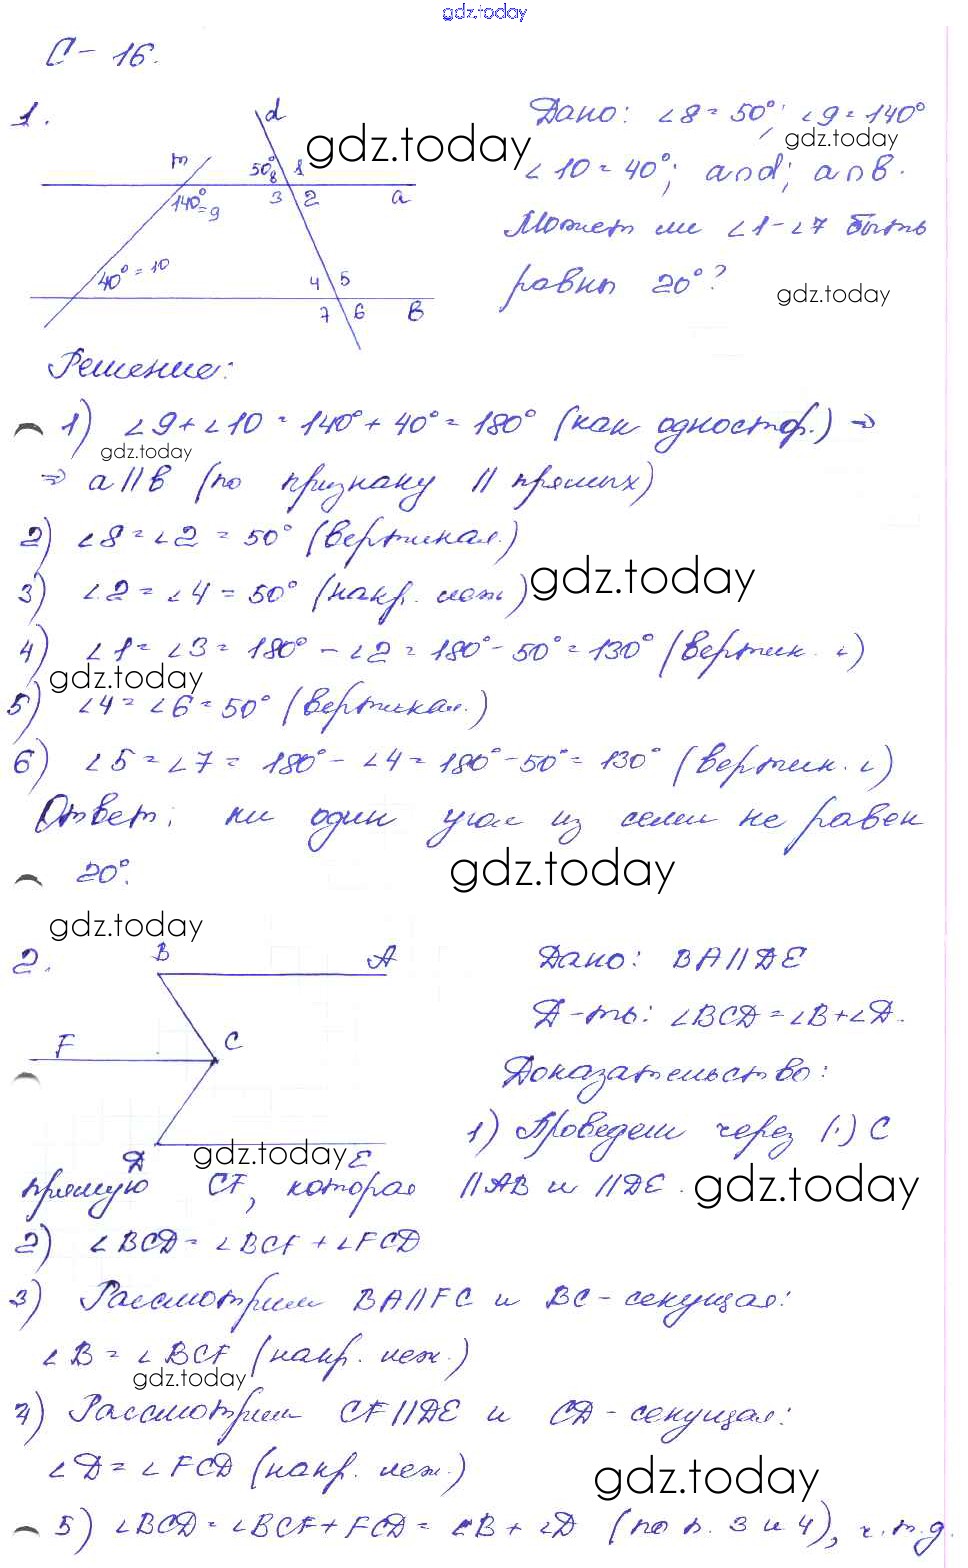 gdz.today
С - 16.
1.
d
m
50° 8 1
140° = 9
3 2 a
40° = 10
4 5
7 6 в
Дано: ∠8 = 50°; ∠9 = 140°
∠10 = 40°; a∩d; a∩в.
Может ли ∠1-∠7 быть
равны 20°?
gdz.today
gdz.today
gdz.today
Решение:
1) ∠9 + ∠10 = 140° + 40° = 180° (как одностор.) ⇒
gdz.today
⇒ a||в (по признаку || прямых)
2) ∠8 = ∠2 = 50° (вертикал.)
3) ∠2 = ∠4 = 50° (накр. леж.)
gdz.today
4) ∠1 = ∠3 = 180° - ∠2 = 180° - 50° = 130° (вертик. ∠)
gdz.today
5) ∠4 = ∠6 = 50° (вертикал.)
6) ∠5 = ∠7 = 180° - ∠4 = 180° - 50° = 130° (вертик. ∠)
Ответ: ни один угол из семи не равен
20°.
gdz.today
gdz.today
2.
B A
F C
Д E
gdz.today
Дано: BA||DE
Д-ть: ∠BCD = ∠B + ∠D.
Доказательство:
1) Проведем через (·) C
прямую CF, которая ||AB и ||DE.
gdz.today
2) ∠BCD = ∠BCF + ∠FCD
3) Рассмотрим BA||FC и BC - секущая:
∠B = ∠BCF (накр. леж.)
gdz.today
4) Рассмотрим CF||DE и CD - секущая:
∠D = ∠FCD (накр. леж.)
gdz.today
5) ∠BCD = ∠BCF + FCD = ∠B + ∠D (по п. 3 и 4), ч.т.д.